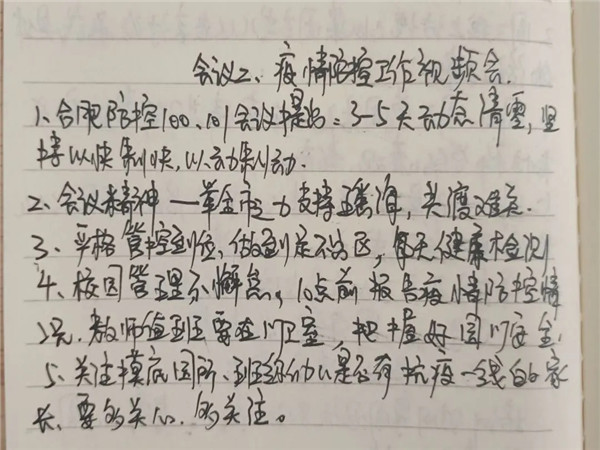 会议二、疫情防控工作视频会.
1、合肥防控100、101会议提出:3-5天动态清零,坚
持以快制快,以动制动.
2、会议精神——举全市之力支持瑶海,共渡难关.
3、严格管控到位,做到足不出区,每天健康检测
4、校园管理不懈怠,10点前报告疫情防控情
况.教师值班要在门卫室,把握好园门安全.
5、关注摸底园所、班级幼儿是否有抗疫一线的家
长、要多关心.多关注。